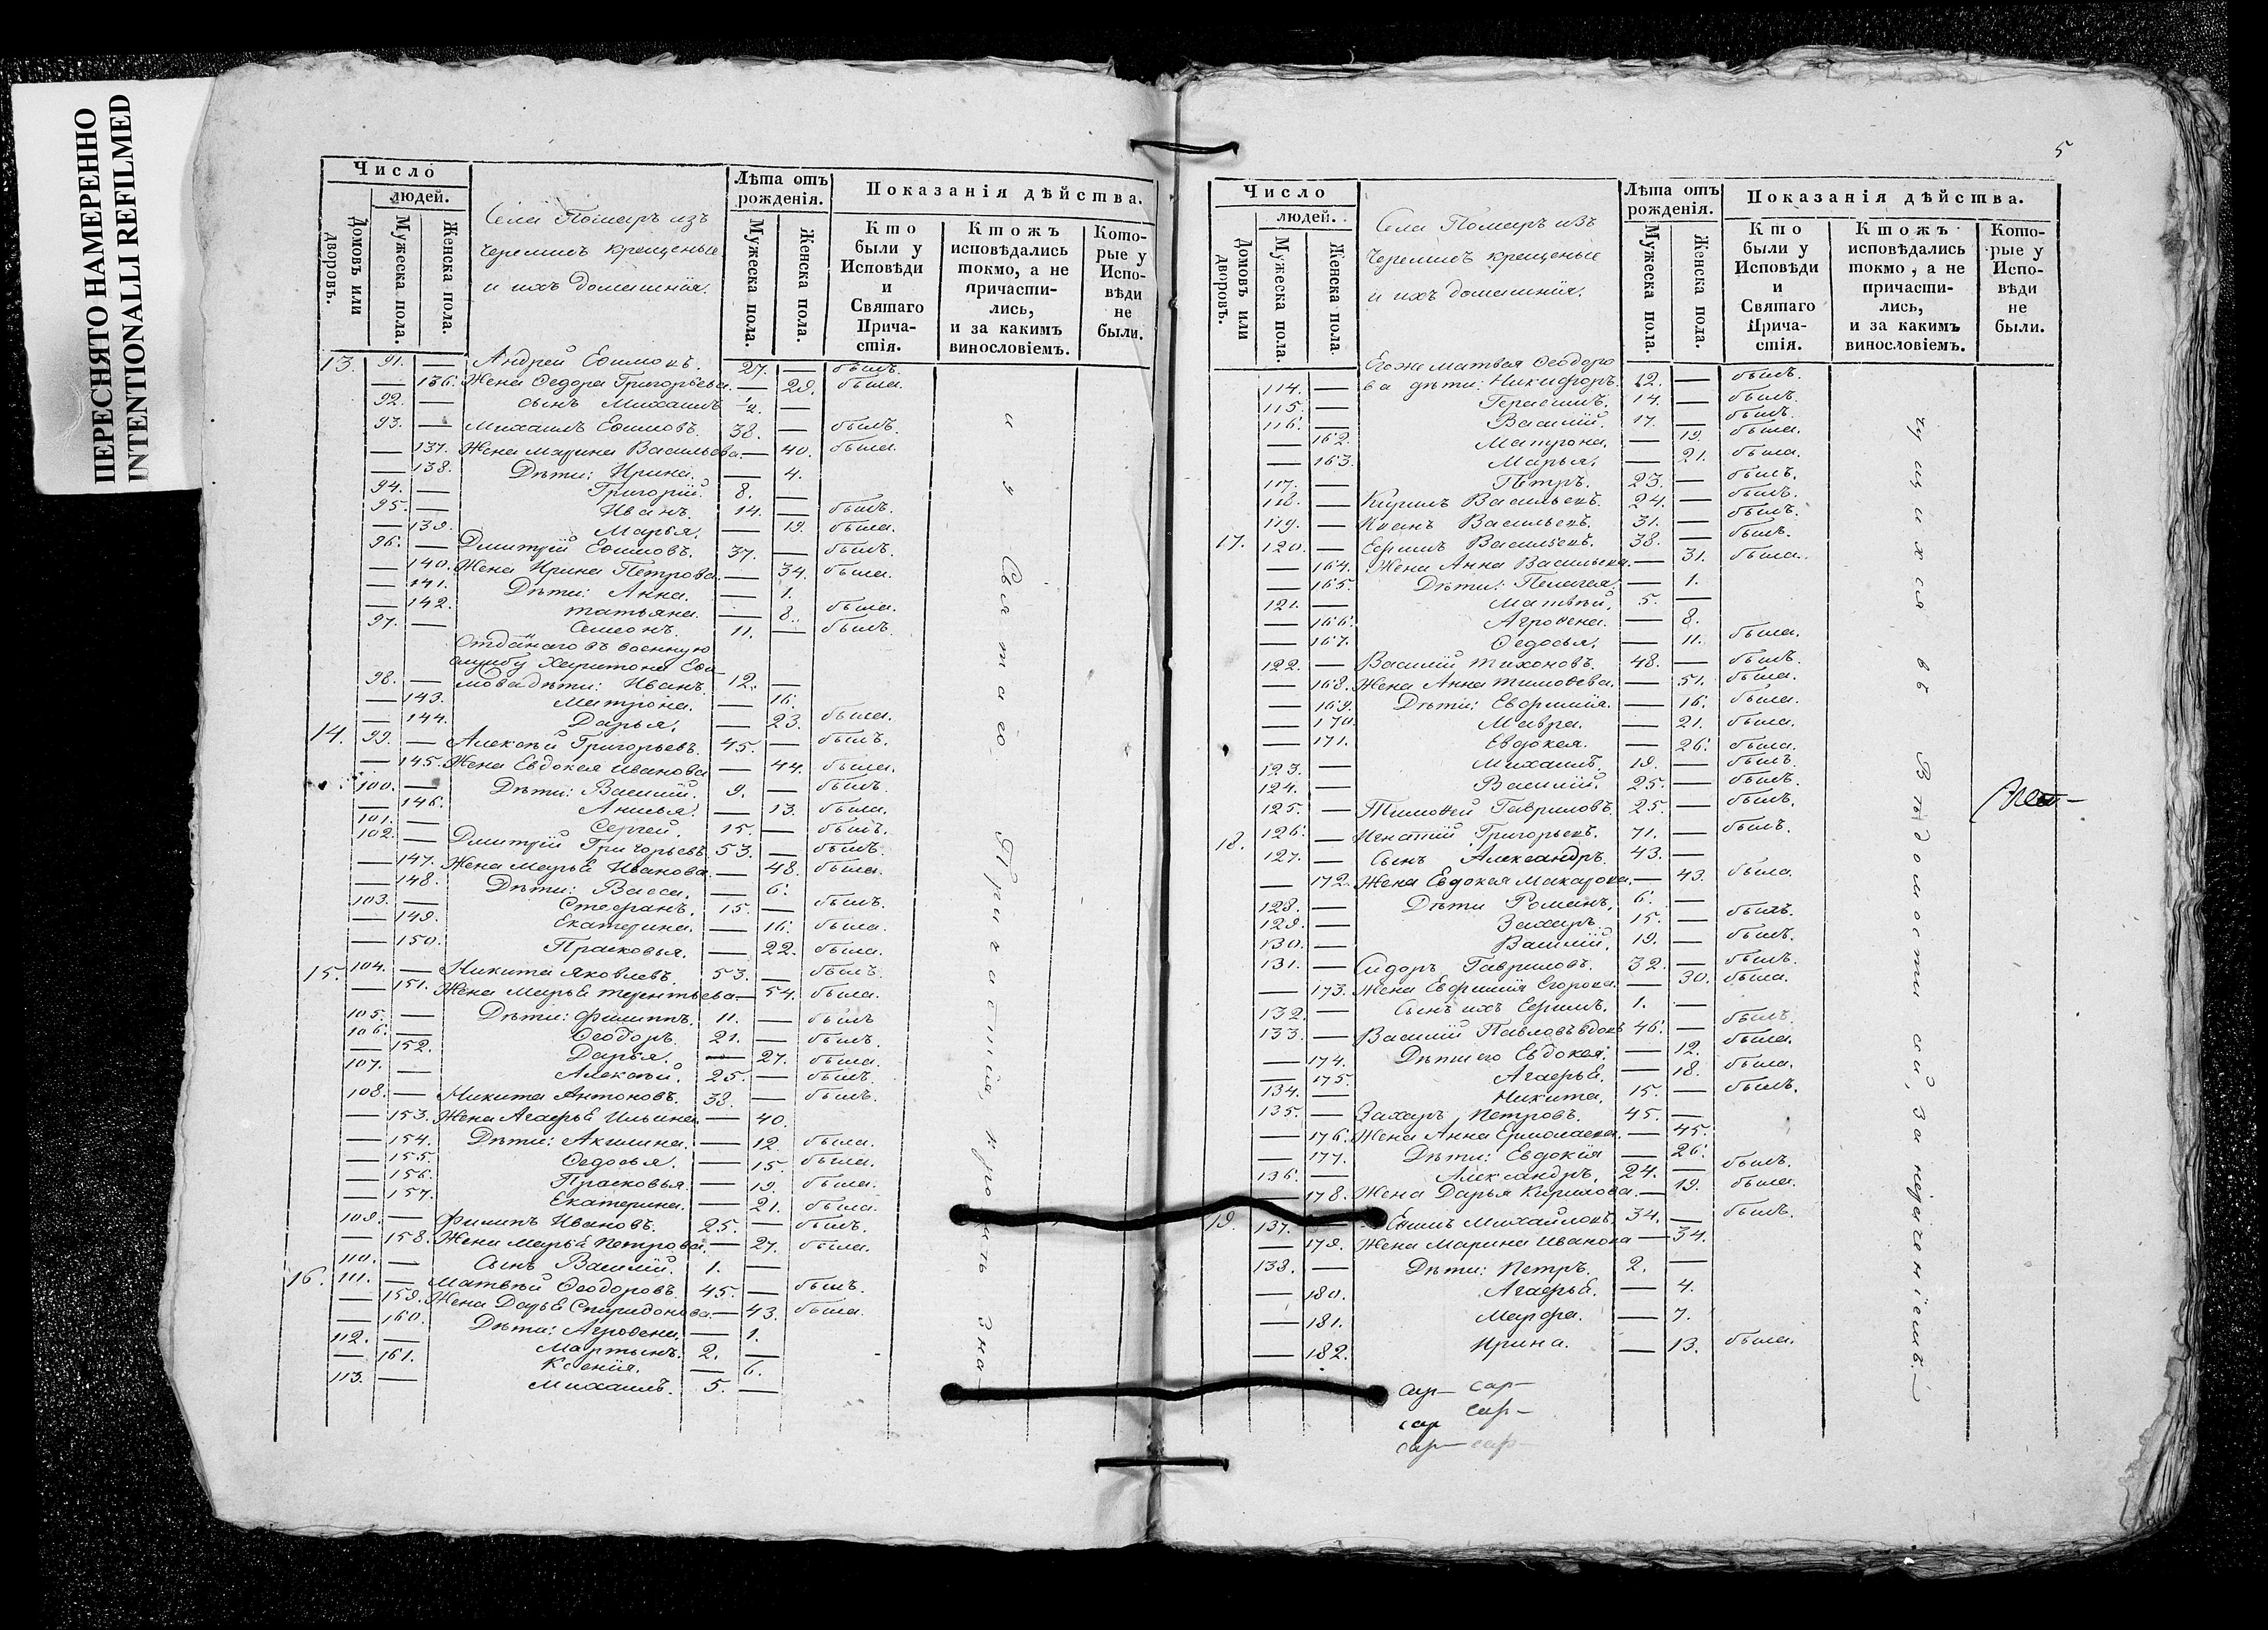 ПЕРЕСНЯТО НАМЕРЕННО
INTENTIONALLI REFILMED
Число
людей.
Домовъ или дворовъ.
Мужеска пола.
Женска пола.
Села Помаръ изъ
Черемисъ крещеные
и ихъ домашнія.
Лѣта отъ рожденія.
Мужеска пола.
Женска пола.
Показанія дѣйства.
Кто были у Исповѣди и Святаго Причастія.
Ктожъ исповѣдались токмо, а не причастились, и за какимъ винословіемъ.
Которые у Исповѣди не были.
13. 91. — Андрей Ефимовъ. 27. — былъ.
— 136. Жена Федора Григорьева. — 29. была.
92. — сынъ Михаилъ 1/2. —
93. — Михаилъ Ефимовъ. 38. — былъ.
— 137. Жена Марина Васильева — 40. была.
— 138. Дѣти: Ирина. — 4.
94. — Григорій. 8. —
95. — Иванъ. 14. — былъ.
— 139. Марья. — 19. была.
96. — Дмитрій Ефимовъ. 37. — былъ.
— 140. Жена Ирина Петрова. — 34. была.
— 141. Дѣти: Анна. — 1.
— 142. Татьяна. — 8. была.
97. — Симеонъ. 11. — былъ.
Отданаго въ военную
службу Харитона Ефи-
98. — мова дѣти: Иванъ. 12. —
— 143. Матрона. — 16.
— 144. Дарья. — 23. была.
14. 99. — Алексѣй Григорьевъ. 45. — былъ.
— 145. Жена Евдокея Иванова — 44. была.
100. — Дѣти: Василій. 9. — былъ.
— 146. Анисья. — 13. была.
101. — Сергей. 15. — былъ.
102. — Дмитрій Григорьевъ. 53. — былъ.
— 147. Жена Марья Иванова. — 48. была.
— 148. Дѣти: Васса. — 6.
103. — Стефанъ. 15. — былъ.
— 149. Екатерина. — 16. была.
— 150. Прасковья. — 22. была.
15. 104. — Никита Яковлевъ. 53. — былъ.
— 151. Жена Марья Терентьева — 54. была.
105. — Дѣти: Филиппъ. 11. — былъ
106. — Феодоръ. 21. — былъ.
— 152. Дарья. — 27. была.
107. — Алексѣй. 25. — былъ.
108. — Никита Антоновъ. 38. — былъ.
— 153. Жена Агафья Ильина — 40.
— 154. Дѣти: Акилина. — 12. была.
— 155. Федосья. — 15. была.
— 156. Прасковья. — 19. была.
— 157. Екатерина. — 21. была.
109. — Филипъ Ивановъ. 25. — былъ.
— 158. Жена Марья Петрова. — 27. была.
110. — Сынъ Василій. 1. —
16. 111. — Матвѣй Феодоровъ. 45. — былъ.
— 159. Жена Дарья Спиридонова — 43. была.
— 160. Дѣти: Агрофена. — 1.
112. — Мартынъ. 2. —
— 161. Ксенія. — 6.
113. — Михаилъ. 5. —
и у Святаго Причастія, кромѣ зна-
5
Число
людей.
Домовъ или дворовъ.
Мужеска пола.
Женска пола.
Села Помаръ изъ
Черемисъ крещеные
и ихъ домашнія.
Лѣта отъ рожденія.
Мужеска пола.
Женска пола.
Показанія дѣйства.
Кто были у Исповѣди и Святаго Причастія.
Ктожъ исповѣдались токмо, а не причастились, и за какимъ винословіемъ.
Которые у Исповѣди не были.
Егоже Матвея Феодоро
114. — ва дѣти: Никифоръ. 12. — былъ.
115. — Герасимъ. 14. — былъ.
116. — Василій. 17. — былъ.
— 162. Матрона. — 19. была.
— 163. Марья. — 21. была.
117. — Петръ. 23. — былъ.
118. — Кирилъ Васильевъ. 24. — былъ.
119. — Иванъ Васильевъ. 31. — былъ.
17. 120. — Ефимъ Васильевъ. 38. — былъ.
— 164. Жена Анна Васильева. — 31. была.
— 165. Дѣти: Пелагея. — 1.
121. — Матвѣй. 5. —
— 166. Агрофена. — 8.
— 167. Федосья. — 11. была.
122. — Василій Тихоновъ. 48. — былъ.
— 168. Жена Анна Тимофеева. — 51. была.
— 169. Дѣти: Евфимія. — 16. была.
— 170. Мавра. — 21. была.
— 171. Евдокея. — 26. была.
123. — Михаилъ. 19. — былъ.
124. — Василій. 25. — былъ.
125. — Тимофей Гавриловъ. 25. — былъ.
18. 126. — Игнатій Григорьевъ. 71. — былъ.
127. — Сынъ Александръ. 43. —
— 172. Жена Евдокея Макарова. — 43. была.
128. — Дѣти Романъ. 6. —
129. — Захаръ. 15. — былъ.
130. — Василій. 19. — былъ.
131. — Сидоръ Гавриловъ. 32. — былъ.
— 173. Жена Евфимія Егорова. — 30. была.
132. — Сынъ ихъ Ефимъ. 1. —
133. — Василій Павловъ вдовъ 46. — былъ.
— 174. Дѣти его Евдокея. — 12. была.
— 175. Агафья. — 18. была.
134. — Никита. 15. — былъ.
135. — Захаръ Петровъ. 45. —
— 176. Жена Анна Ермолаева. — 45.
— 177. Дѣти: Евдокія — 26.
136. — Александръ. 24. — былъ.
— 178. Жена Дарья Кирилова. — 19. была.
19. 137. — Михайловъ. 34. — былъ.
— 179. Жена Марина Иванова — 34.
138. — Дѣти: Петръ. 2. —
— 180. Агафья. — 4.
— 181. Марфа. — 7.
— 182. Ирина. — 13. была.
чущихся въ Вѣдомости сей, за нераченіемъ.